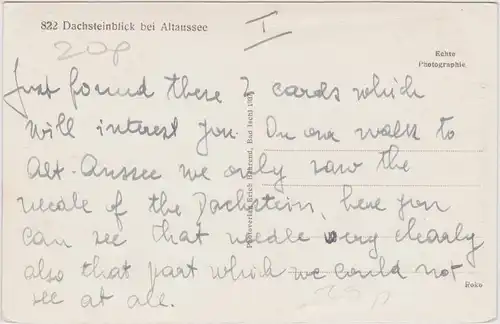 822 Dachsteinblick bei Altaussee
I
20p
Echte
Photographie
Just found these 2 cards which
will interest you. On our walk to
Alt-Aussee we only saw the
neale of the Dachstein, here you
can see that needle very clearly
also that part which we could not
see at all.
Photoverlag Erich Bährend, Bad Ischl
Reko